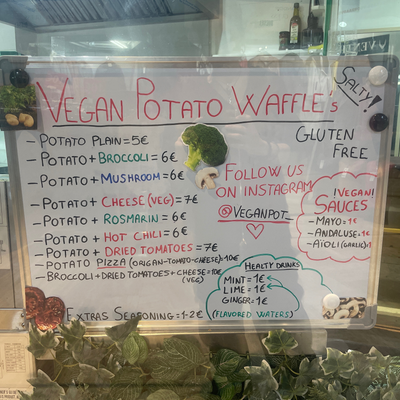 VEGAN POTATO WAFFLE's
SALTY!
GLUTEN
FREE
- POTATO PLAIN = 5€
- POTATO + BROCCOLI = 6€
- POTATO + MUSHROOM = 6€
- POTATO + CHEESE (VEG) = 7€
- POTATO + ROSMARIN = 6€
- POTATO + HOT CHILI = 6€
- POTATO + DRIED TOMATOES = 7€
- POTATO PIZZA (ORIGAN-TOMATO-CHEESE) = 10€
- BROCCOLI + DRIED TOMATOES + CHEESE = 10€
(VEG)
EXTRAS SEASONING = 1-2€
FOLLOW US
ON INSTAGRAM
@VEGANPOT_
!VEGAN!
SAUCES
- MAYO = 1€
- ANDALUSE = 1€
- AIOLI (GARLIC) = 1
HEALTY DRINKS
MINT = 1€
LIME = 1€
GINGER = 1€
(FLAVORED WATERS)